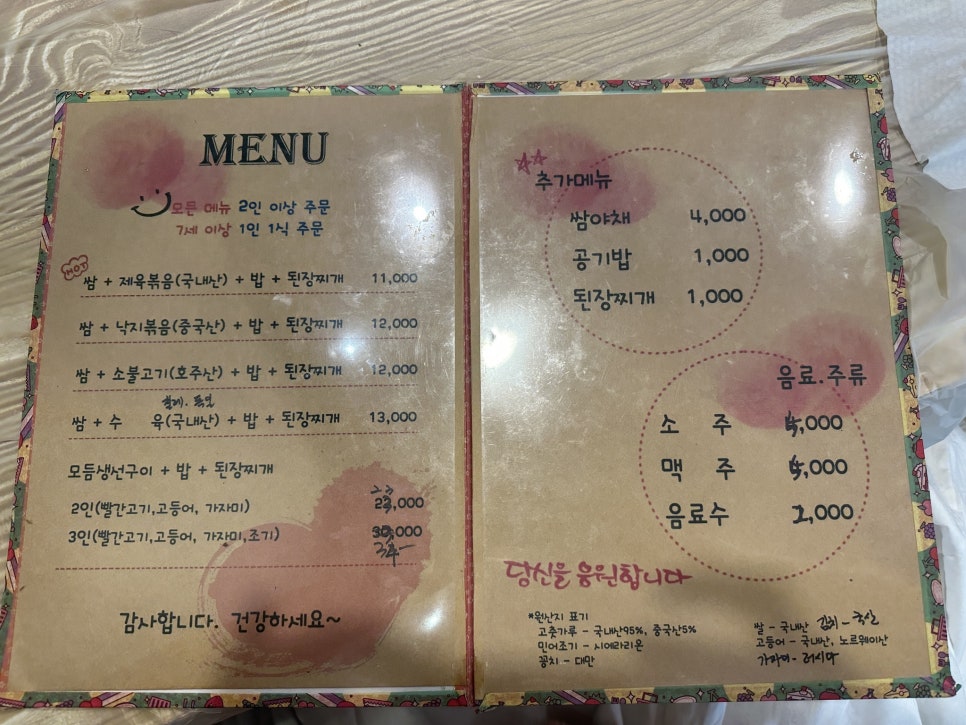 MENU
모든 메뉴 2인 이상 주문
7세 이상 1인 1식 주문
HOT
쌈 + 제육볶음(국내산) + 밥 + 된장찌개 11,000
쌈 + 낙지볶음(중국산) + 밥 + 된장찌개 12,000
쌈 + 소불고기(호주산) + 밥 + 된장찌개 12,000
쌈 + 수 육(국내산) + 밥 + 된장찌개 13,000
모듬생선구이 + 밥 + 된장찌개
2인(빨간고기,고등어, 가자미) ,000
3인(빨간고기,고등어, 가자미,조기) 30,000
34-
감사합니다. 건강하세요~
추가메뉴
쌈야채 4,000
공기밥 1,000
된장찌개 1,000
음료.주류
소 주 ,000
맥 주 ,000
음료수 2,000
당신을 응원합니다
*원산지 표기
고춧가루 - 국내산95%, 중국산5%
민어조기 - 시에라리온
꽁치 - 대만
쌀 - 국내산 김치 - 국산
고등어 - 국내산, 노르웨이산
가자미 - 러시아